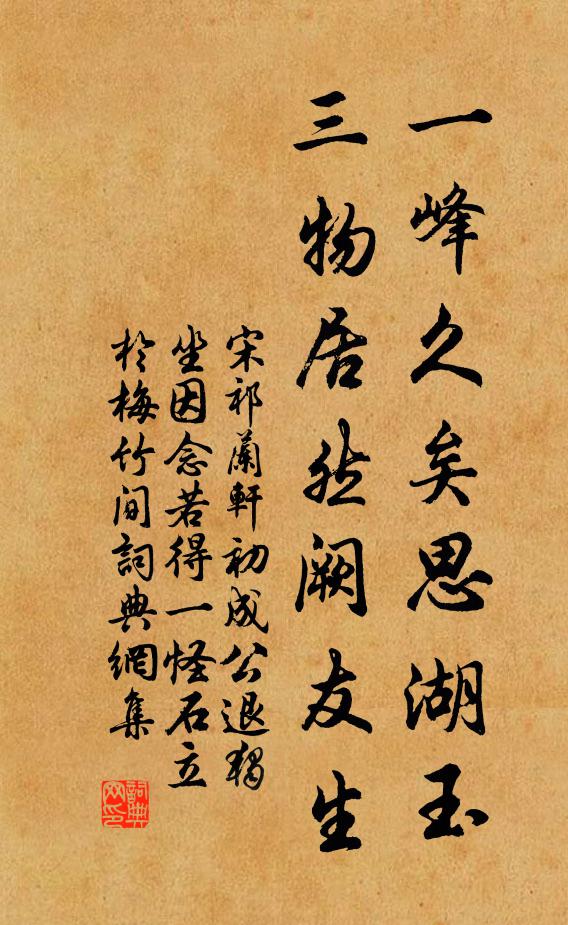 一峰久矣思湖玉
三物居然阙友生
宋祁蘭軒初成公退獨
坐因念若得一怪石立
於梅竹间詞典網集
詞典网印